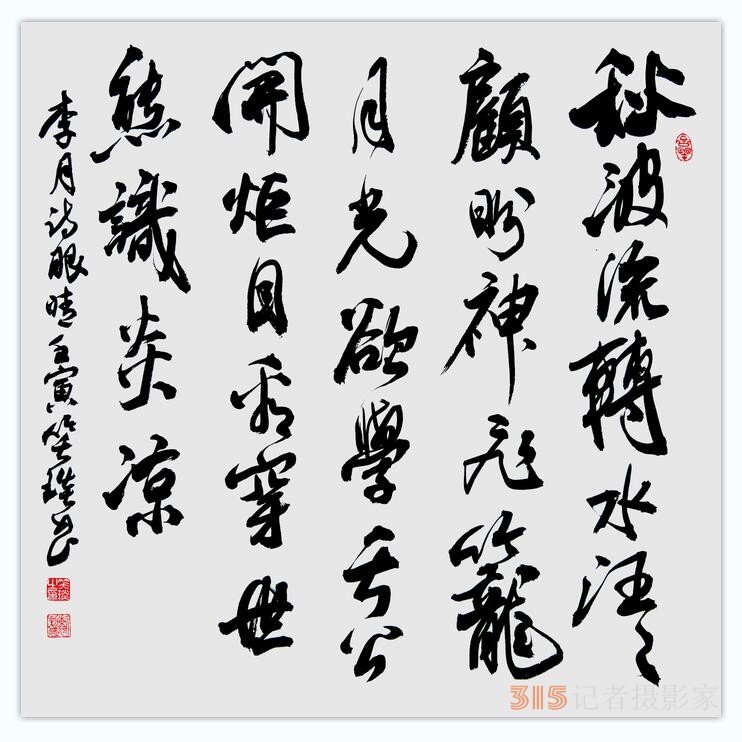 秋波流轉水汪々
顧盼神飛籠
月光欲學公
開炬目看穿世
態識炎凉
李月诗眼睛壬寅笑琰书
315记者摄影家